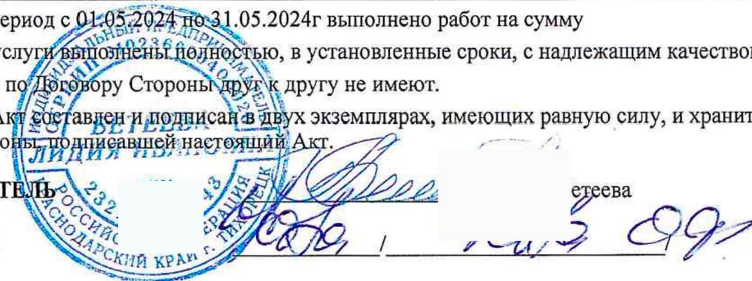 ериод с 01.05.2024 по 31.05.2024г выполнено работ на сумму
слуги выполнены полностью, в установленные сроки, с надлежащим качество
по Договору Стороны друг к другу не имеют.
Акт составлен и подписан в двух экземплярах, имеющих равную силу, и хранит
оны, подписавшей настоящий Акт.
ТЕЛЬ
етеева
ИНДИВИДУАЛЬНЫЙ ПРЕДПРИНИМАТЕЛЬ
ВЕТЕЕВА
ЛИДИЯ ИВАНОВНА
РОССИЙСКАЯ ФЕДЕРАЦИЯ
КРАСНОДАРСКИЙ КРАЙ г. ТИХОРЕЦК